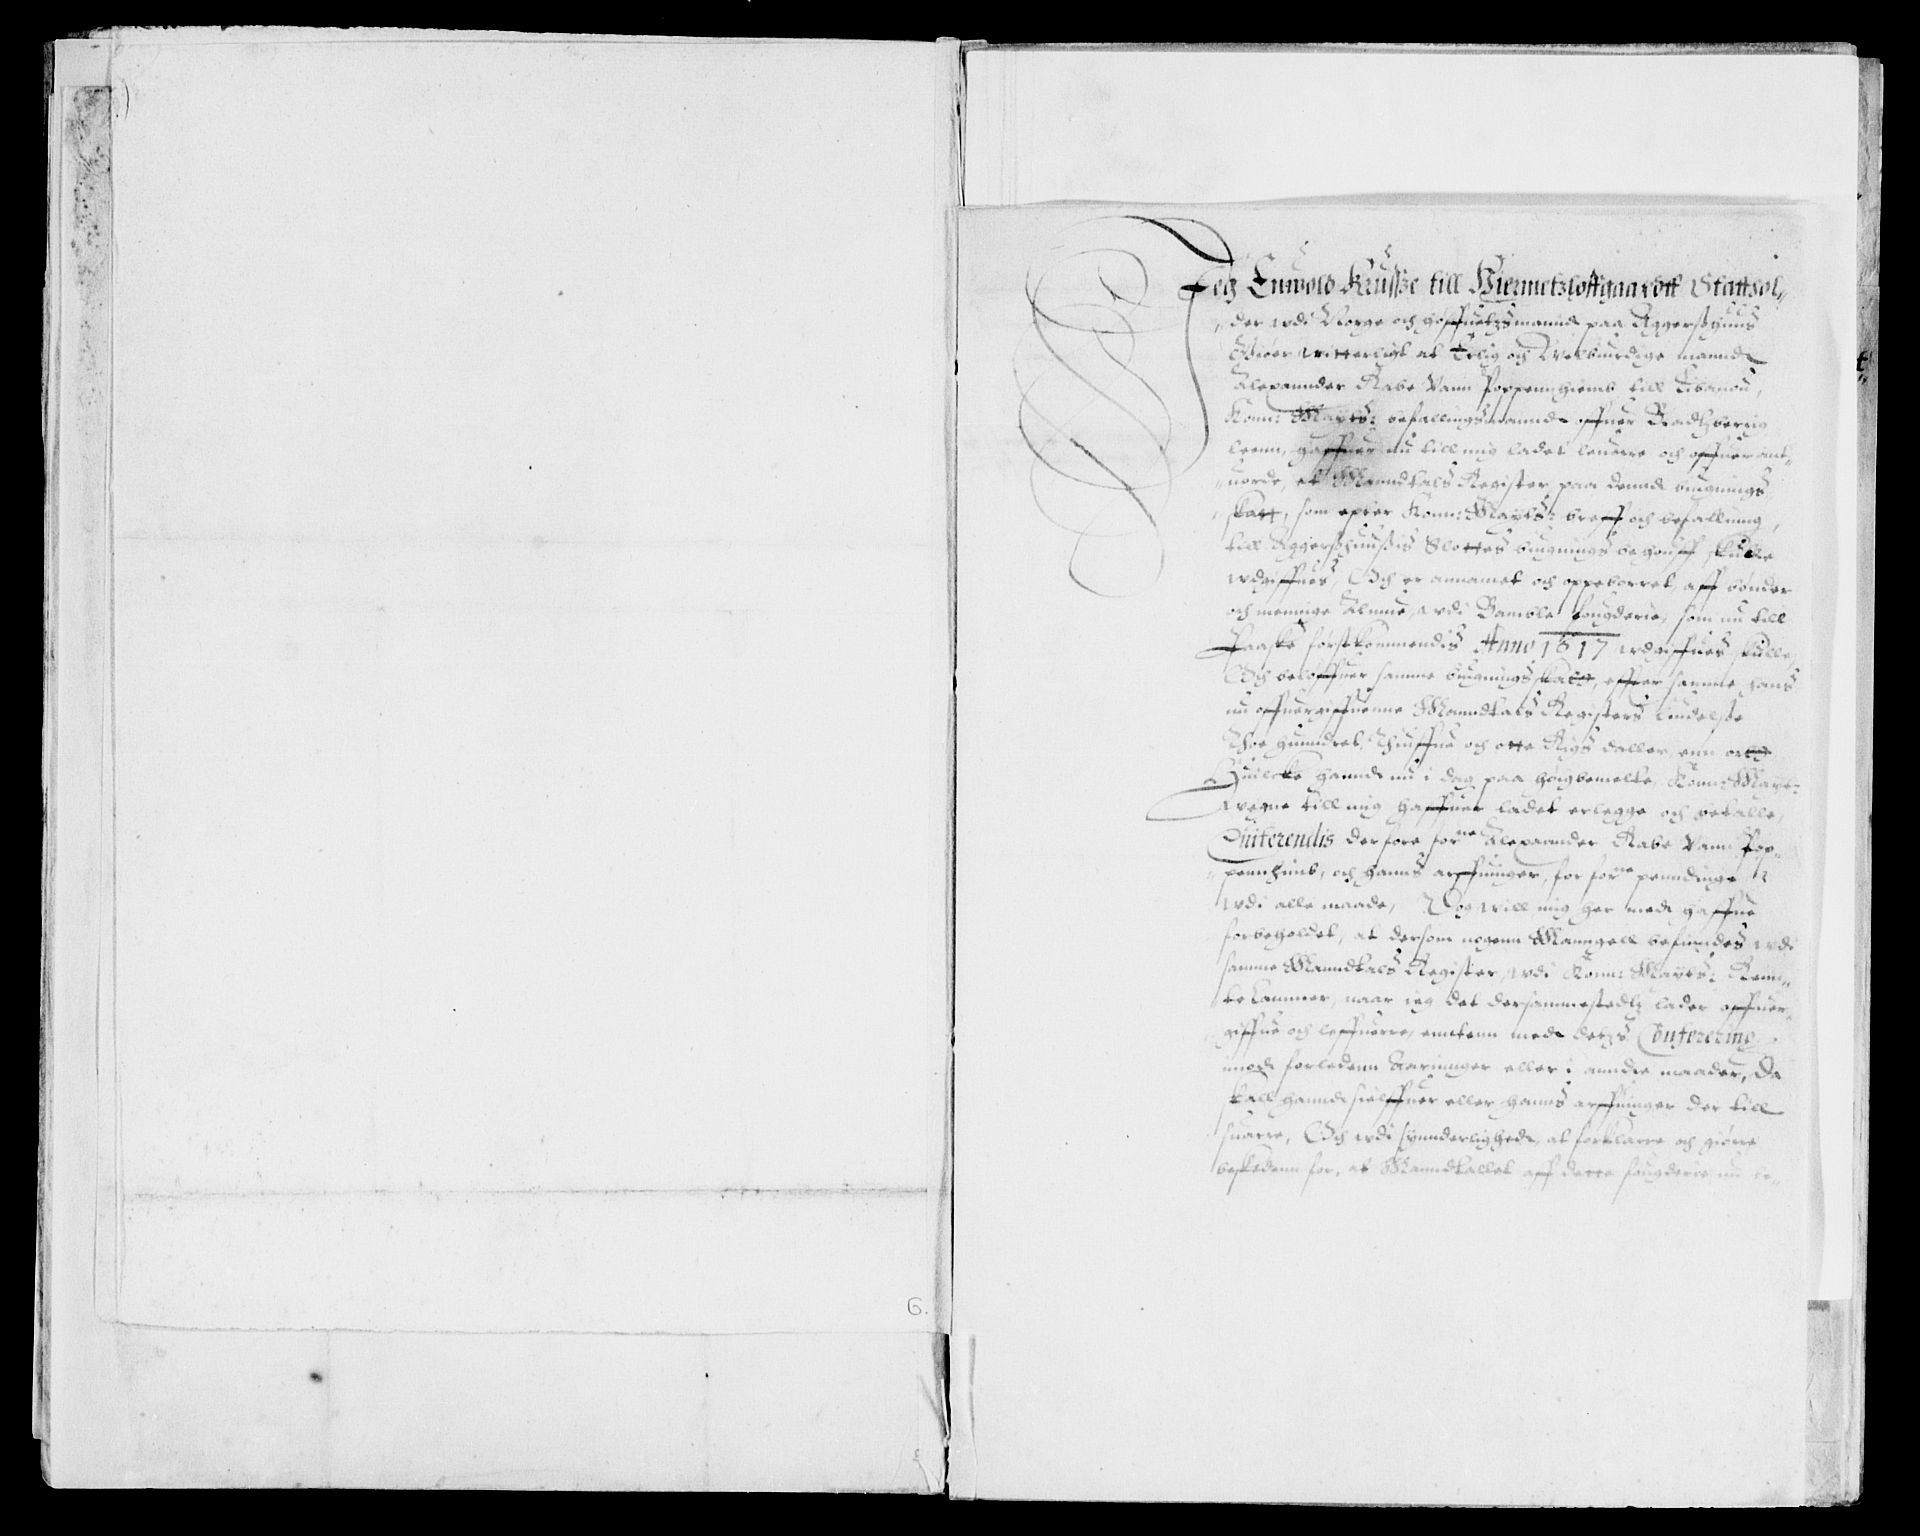 Jeg Enwold Krusse till Hiermetzløffgaardtt Stattol„
„der wdi Norge och høffuetzmannd paa Aggershuus
Giør witterligt at Erlig och Welbiurdige mannd
Alexannder Rabe Vann Poppennhiemb till Libanon,
Konn: Maytz: befallingsmannd offuer Bradtzberrig
leenn, haffuer nu till mig ladet leuerre och offuerant„
„uorde, et Manndtals Register paa dennd bugnings
„skatt, som epter Konn: Maytz: breff och befallning,
till Aggershuusis Slottes bugnings behouff skulle
wdgiffues, Och er annamet och oppeborret, aff bønder
och menige Almue, wdi Bamble fougderie, som nu till
Paaske førstkommendis Anno 1617 wdgiffues skulle,
Och beløffuer samme bugnings skatt, effter samme hans
nu offuergiffuenne Manndtals Registers liudelsse
Thoe hunndret, Thiuffue och otte Rigs daller, enn ortt
Huilcke hannd nu i dag paa høigbemelte, Konn: Mayt:
wegne till mig haffuer ladet erlegge och betalle,
Quiterendis derfore forne Alexannder Rabe Vann Pop„
„pennhimb, och hanns arffuinger, for forne penndinge
wdi alle maade, Dog will mig her med haffue
forbeholdet, at dersom nogenn Manngell befindes wdi
samme Manndtals Register, wdi Konn: Maytz: Renn„
te Cammer, naar ieg det dersammestedtz lader offuer„
giffue och leffuerre, enntenn med detzs Confererinng
imod forledenn Aaringer eller i anndre maader, Da
skall hannd sielffuer eller hanns arffuinger der till
suarre, Och wdi synnderlighed, at forklarre och giørre
beskedenn for, at Manndtallet aff dette fougderie nu be„
6.